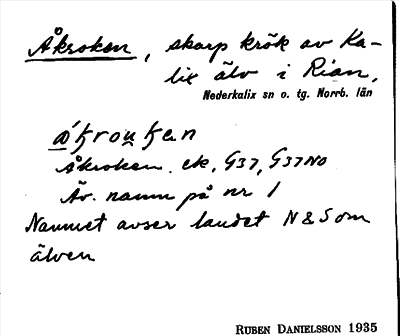 Åkroken, skarp krök av Ka-
lix älv i Rian,
Nederkalix sn o. tg. Norrb. län
Åkroken. ek, G37, G37NO
Äv. namn på nr 1
Namnet avser landet N & S om
älven
RUBEN DANIELSSON 1935